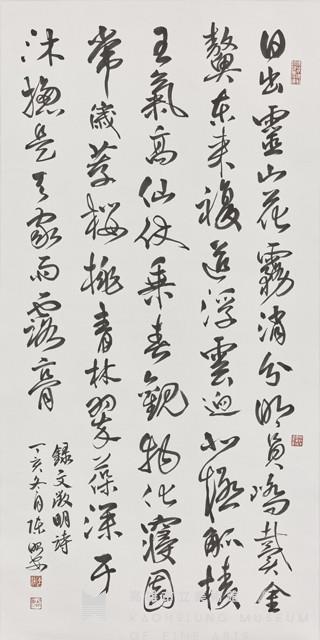 日出靈山花霧消分明員嶠戴金
鰲東來複道浮雲迥北極觚棱
王氣高仙仗乘春觀物化寢園
常歲薦櫻桃青林翠葆深于
沐摠是天家雨露膏
錄文徵明詩
丁亥冬月陳明
高雄市立美術館
KAOHSIUNG MUSEUM
OF FINE ARTS